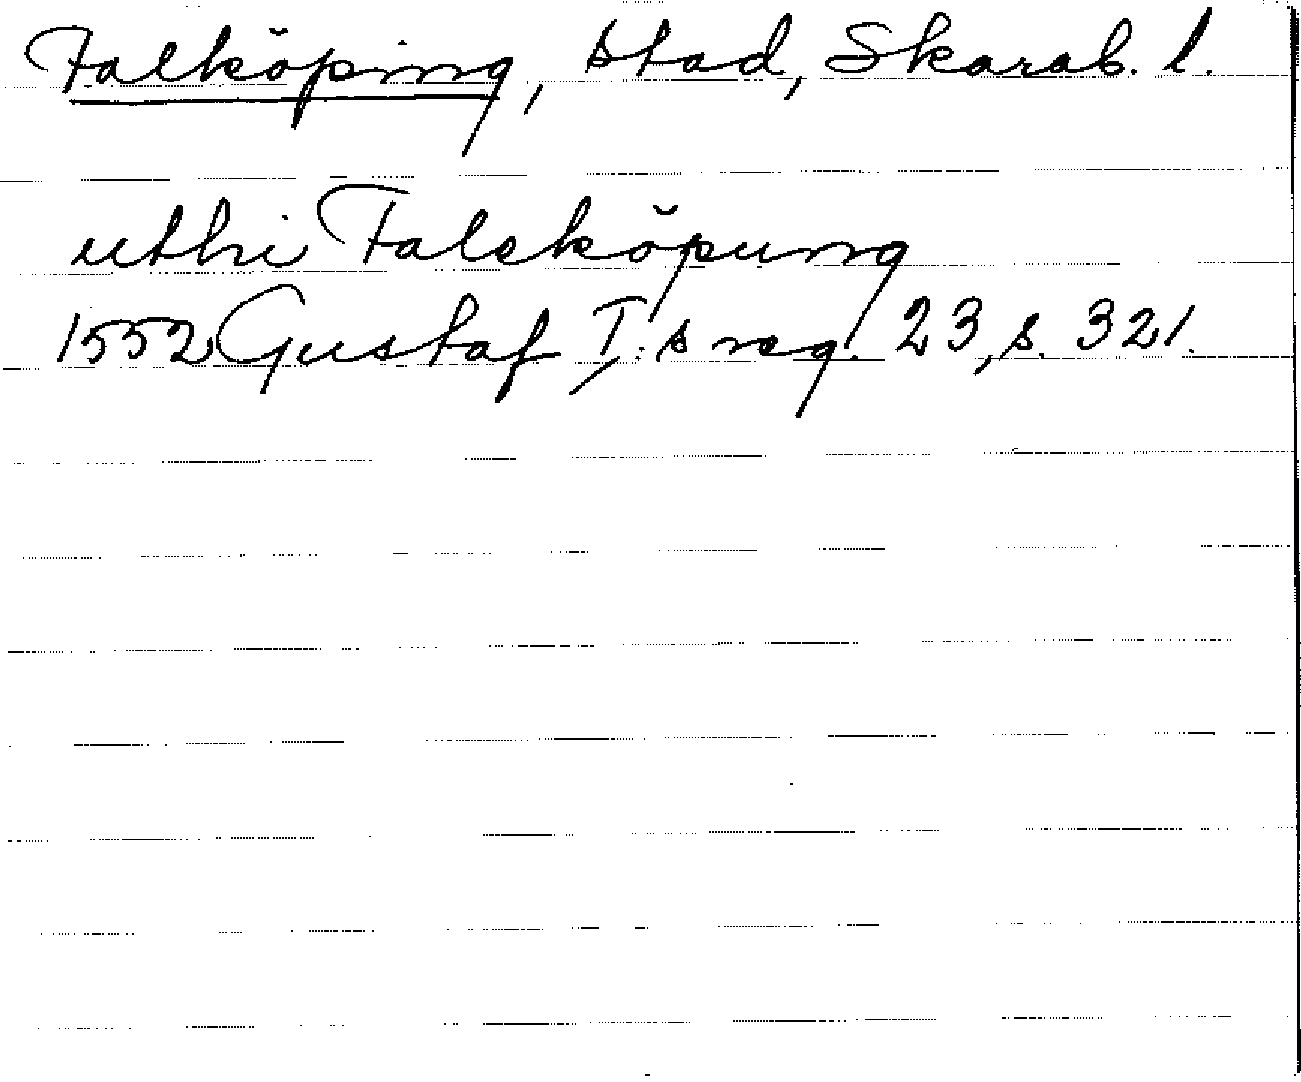 Falköping, stad, Skarab. l.
uthi Faleköpung
1552 Gustaf I:s reg. 23, s. 321.